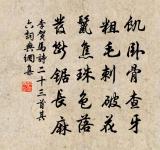 飢臥骨查牙
粗毛刺破花
鬣焦珠色落
發斷鋸長麻
李賀馬詩二十三首其
六詞典網集